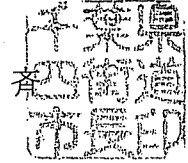 千葉県
斉四街道
市長印